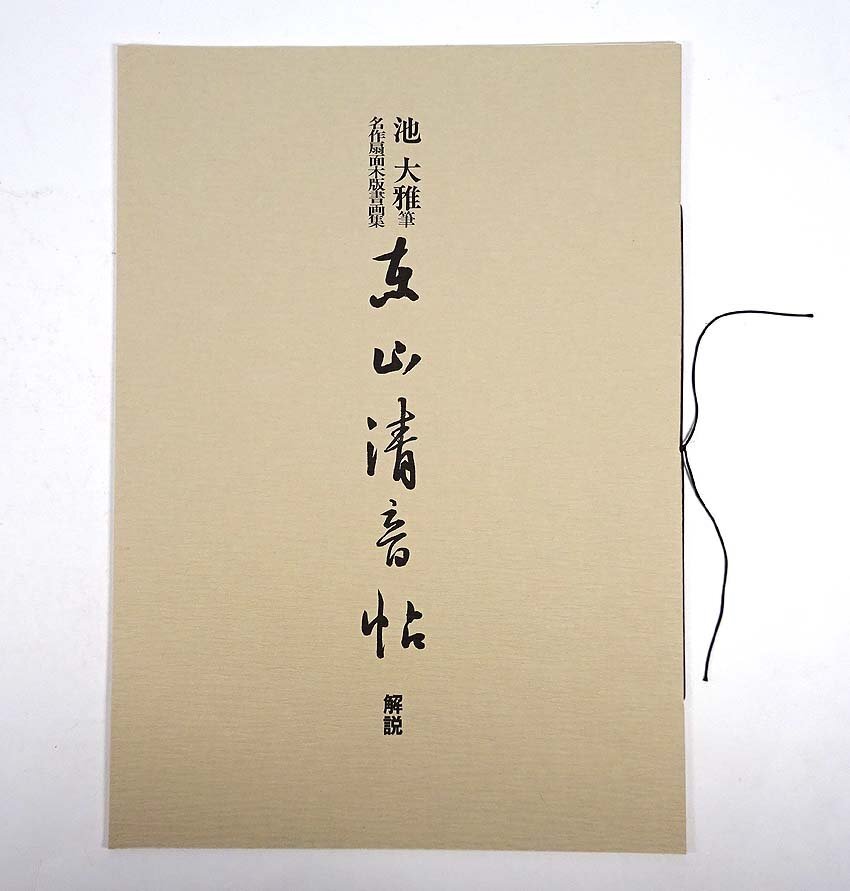 池大雅筆
名作扇面木版書画集
東山清音帖
解説